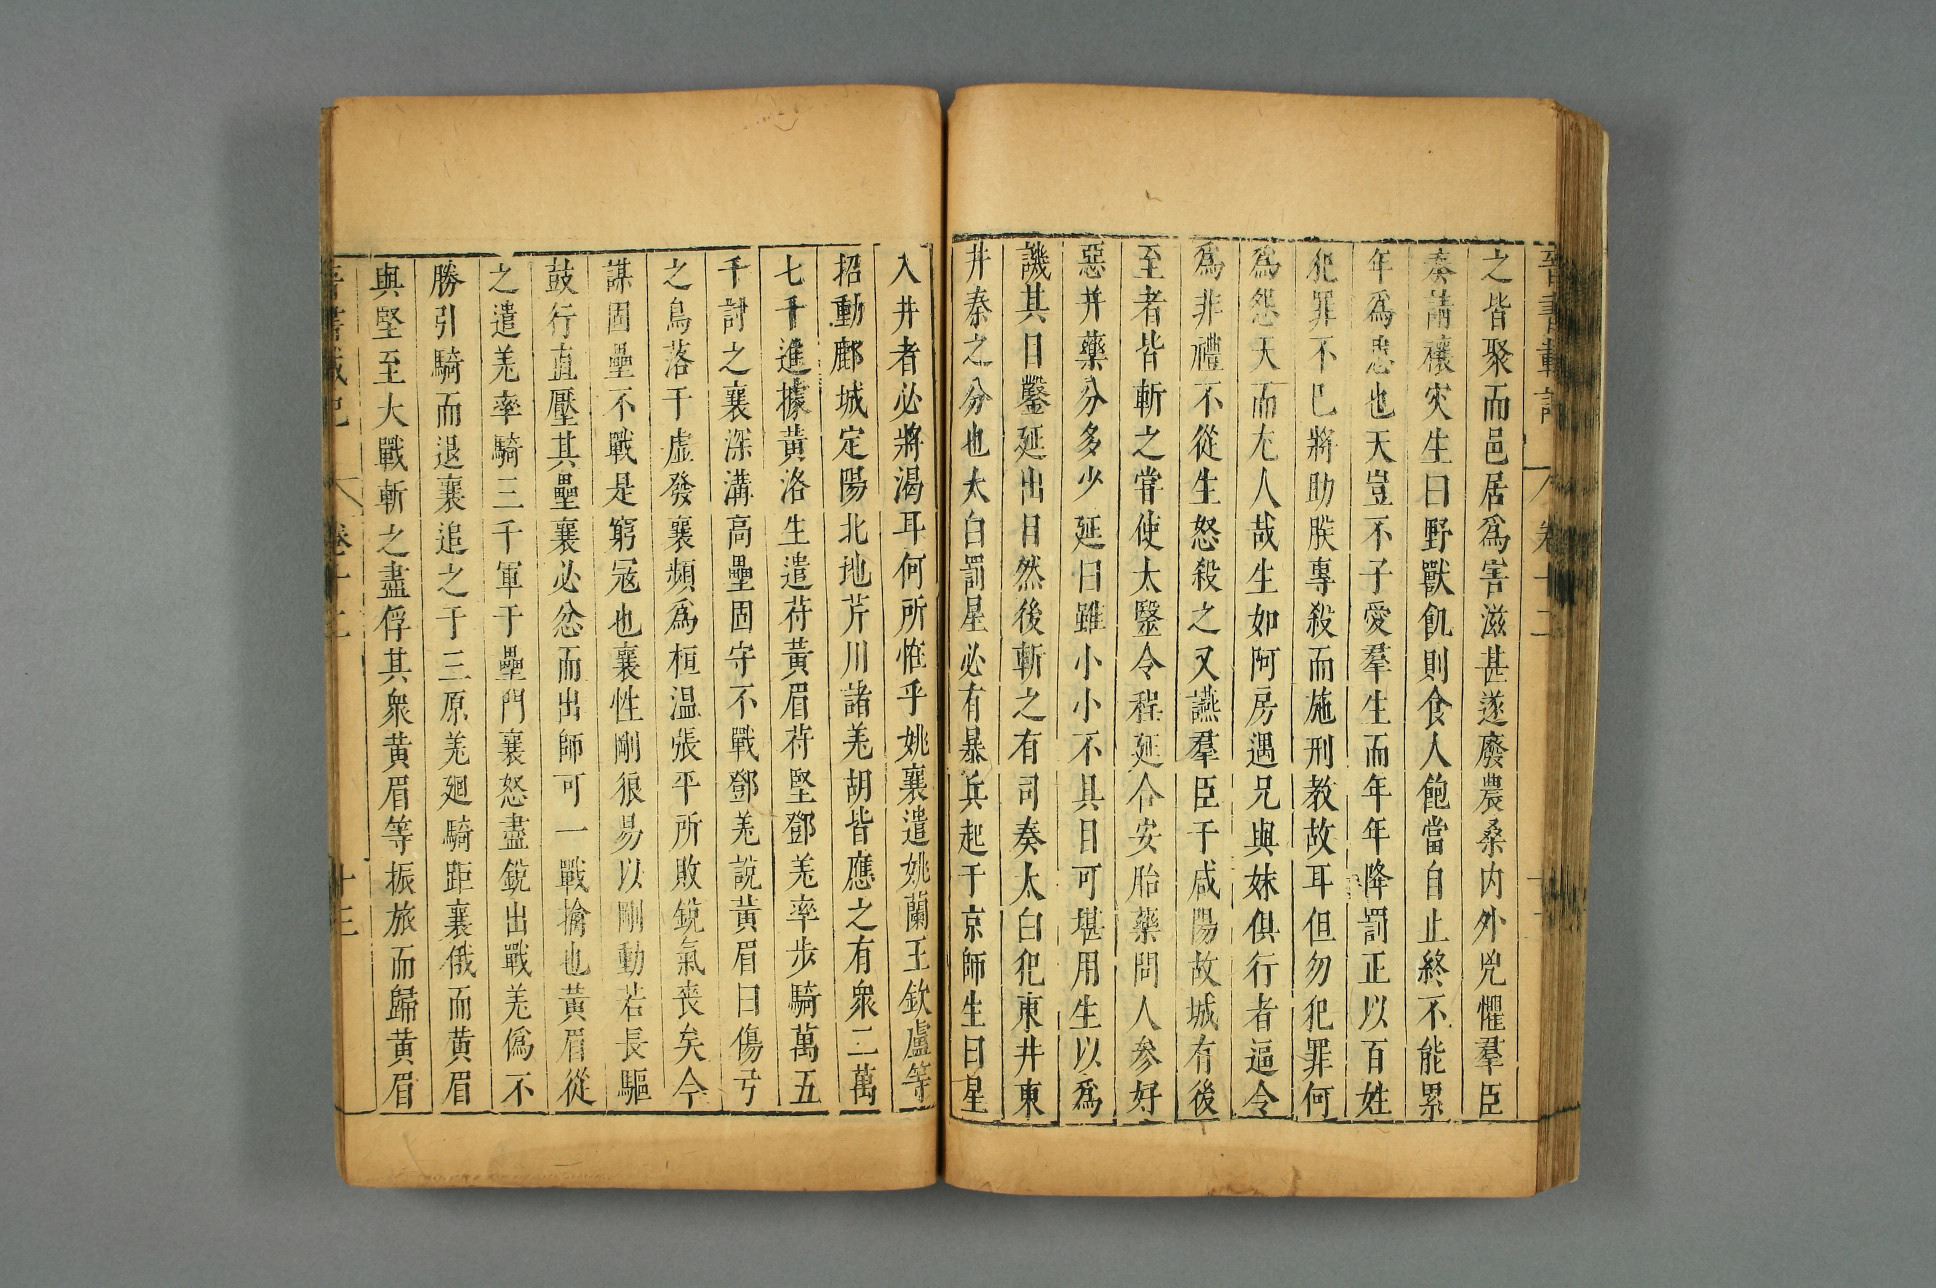 晉書載記 卷十二
之皆聚而邑居爲害滋甚遂廢農桑内外兇懼羣臣
奏請禳灾生曰野獸飢則食人飽當自止終不能累
年爲患也天豈不子愛羣生而年年降罰正以百姓
犯罪不已將助朕專殺而施刑教故耳但勿犯罪何
爲怨天而尤人哉生如阿房遇兄與妹俱行者逼令
爲非禮不從生怒殺之又讌羣臣于咸陽故城有後
至者皆斬之甞使太醫令程延合安胎藥問人參好
惡并藥分多少延曰雖小小不具自可堪用生以爲
譏其目鑿延出目然後斬之有司奏太白犯東井東
井秦之分也太白罰星必有暴兵起于京師生曰星
入井者必將渴耳何所恠乎姚襄遣姚蘭王欽盧等
招動鄜城定陽北地芹川諸羌胡皆應之有衆二萬
七千進據黄洛生遣苻黄眉苻堅鄧羌率步騎萬五
千討之襄深溝高壘固守不戰鄧羌說黄眉曰傷弓
之鳥落于虚發襄頻爲桓温張平所敗銳氣喪矣今
謀固壘不戰是窮寇也襄性剛狠易以剛動若長驅
鼓行直壓其壘襄必忿而出師可一戰擒也黄眉從
之遣羌率騎三千軍于壘門襄怒盡銳出戰羌僞不
勝引騎而退襄追之于三原羌廻騎距襄俄而黄眉
與堅至大戰斬之盡俘其衆黄眉等振旅而歸黄眉
晉書載記 卷十二 十三